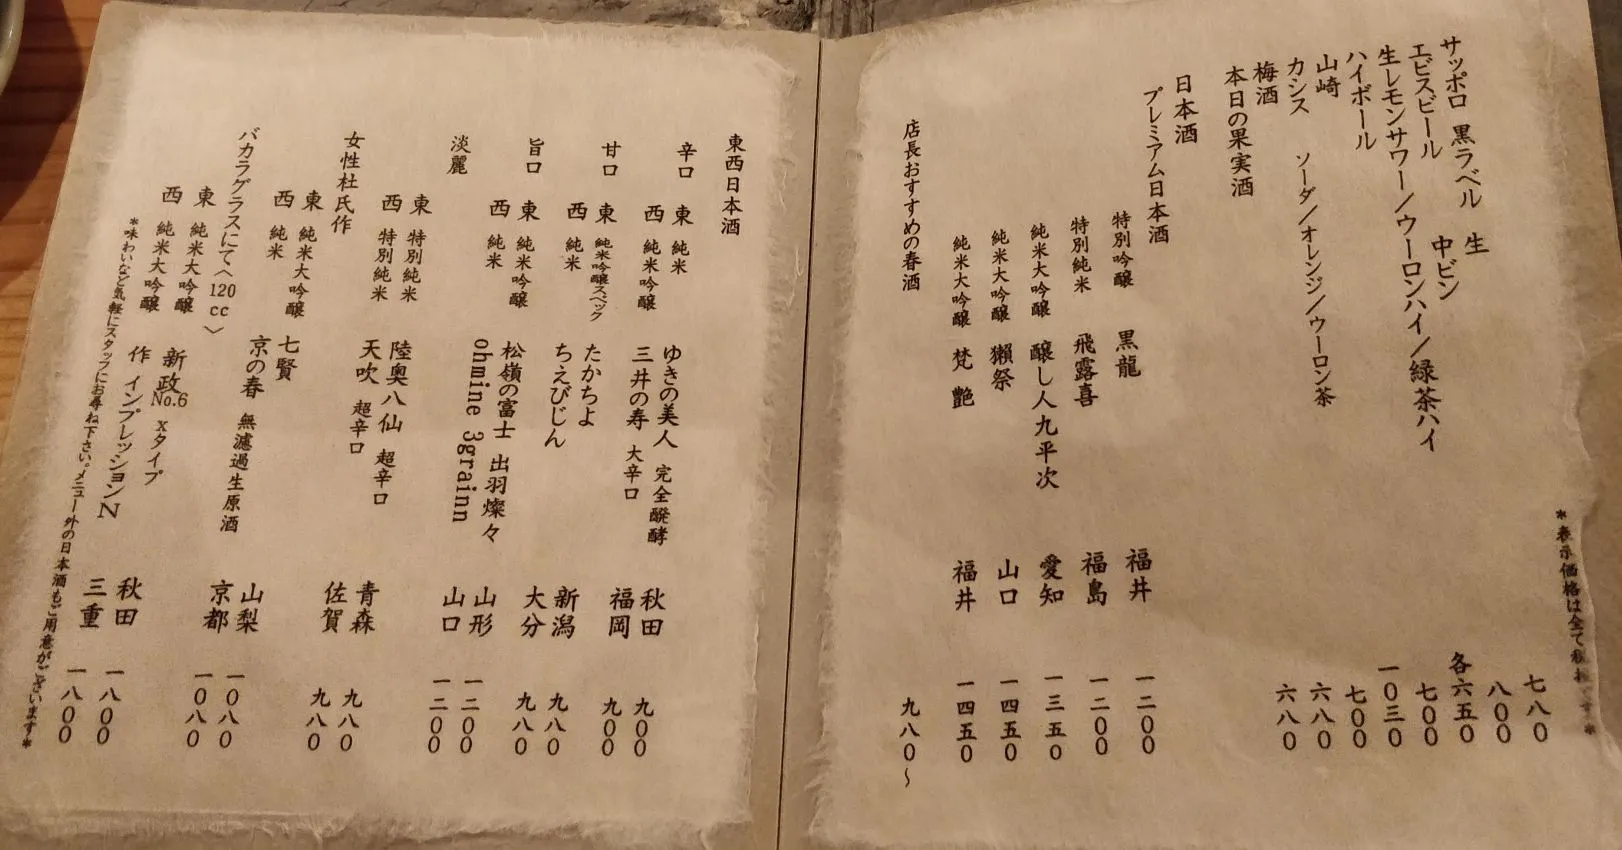 *表示価格は全て税抜です*
サッポロ 黒ラベル 生 七八〇
エビスビール 中ビン 八〇〇
生レモンサワー／ウーロンハイ／緑茶ハイ 各六五〇
ハイボール 七〇〇
山崎 一〇三〇
カシス ソーダ／オレンジ／ウーロン茶 七〇〇
梅酒 六八〇
本日の果実酒 六八〇
日本酒
プレミアム日本酒
特別吟醸 黒龍 福井 一二〇〇
特別純米 飛露喜 福島 一二〇〇
純米大吟醸 醸し人九平次 愛知 一三五〇
純米大吟醸 獺祭 山口 一四五〇
純米大吟醸 梵 艶 福井 一四五〇
店長おすすめの春酒 九八〇〜
東西日本酒
辛口 東 純米 ゆきの美人 完全醗酵 秋田 九〇〇
西 純米吟醸 三井の寿 大辛口 福岡 九〇〇
甘口 東 純米吟醸スペック たかちよ 新潟 九八〇
西 純米 ちえびじん 大分 九八〇
旨口 東 純米吟醸 松嶺の富士 出羽燦々 山形 一二〇〇
西 純米 ohmine 3grainn 山口 一二〇〇
淡麗 東 特別純米 陸奥八仙 超辛口 青森 九八〇
西 特別純米 天吹 超辛口 佐賀 九八〇
女性杜氏作
東 純米大吟醸 七賢 山梨 一〇八〇
西 純米 京の春 無濾過生原酒 京都 一〇八〇
バカラグラスにて〈120cc〉
東 純米大吟醸 新政No.6 xタイプ 秋田 一八〇〇
西 純米大吟醸 作 インプレッションN 三重 一八〇〇
*味わいなど気軽にスタッフにお尋ね下さい。メニュー外の日本酒もご用意がございます*